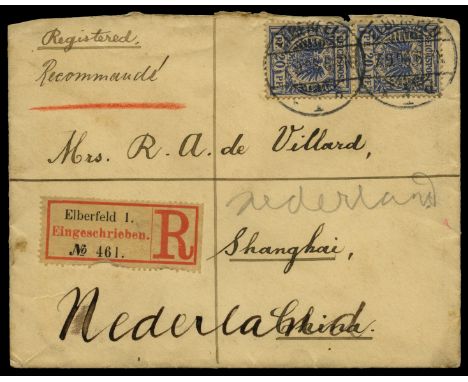 Registered.
Recommandé
20 PF 20
20 PF 20
Mrs. R. A. de Villard,
nederland
Elberfeld 1.
Eingeschrieben.
№ 461.
R
Shanghai,
China.
Nederland